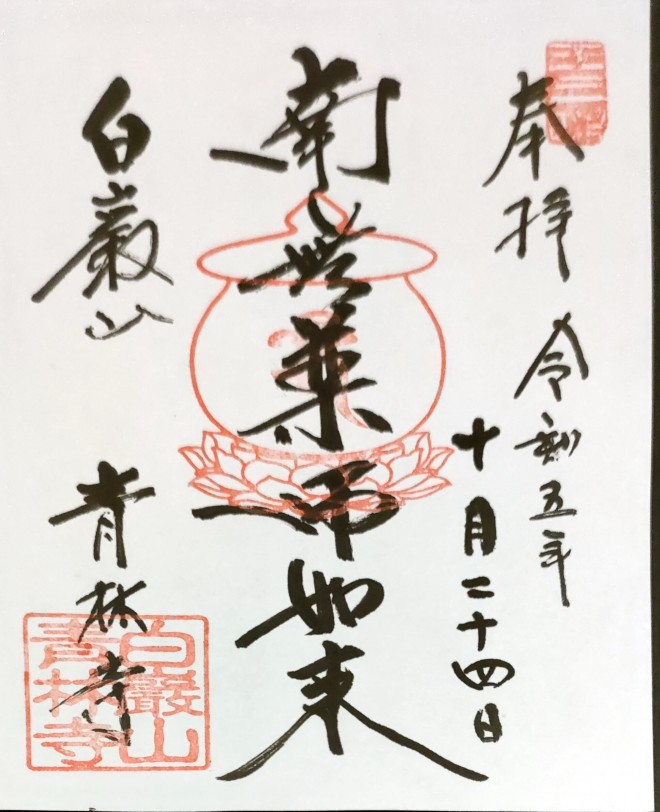 奉拝 令和五年
十月二十四日
南無薬师如来
白巌山
青林寺
白巖山
青林寺